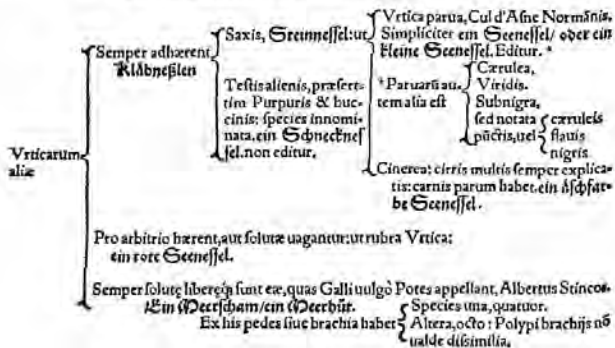 Vrticarum
aliæ
Semper adhærent
Klåbneßlen
Saxis, Steinnessel: ut
Vrtica parua, Cul d'Asne Normānis.
Simpliciter ein Seenessel/ oder ein
kleine Seenessel. Editur. *
*Paruarū au-
tem alia est
Cærulea,
Viridis.
Subnigra,
sed notata
pūctis, uel
cæruleis
flauis
nigris.
Cinerea: cirris multis semper explica-
tis: carnis parum habet. ein åschfar-
be Seenessel.
Testis alienis, præser-
tim Purpuris & buc-
cinis: species innomi-
nata. ein Schnecknes
sel. non editur.
Pro arbitrio hærent, aut solutæ uagantur: ut rubra Vrtica:
ein rote Seenessel.
Semper solutę liberęq́ sunt eæ, quas Galli uulgò Potes appellant, Albertus Stincos.
Ein Meerscham/ein Meerhůt.
Ex his pedes siue brachia habet
Species una, quatuor.
Altera, octo: Polypi brachijs nō
ualde dissimilia.